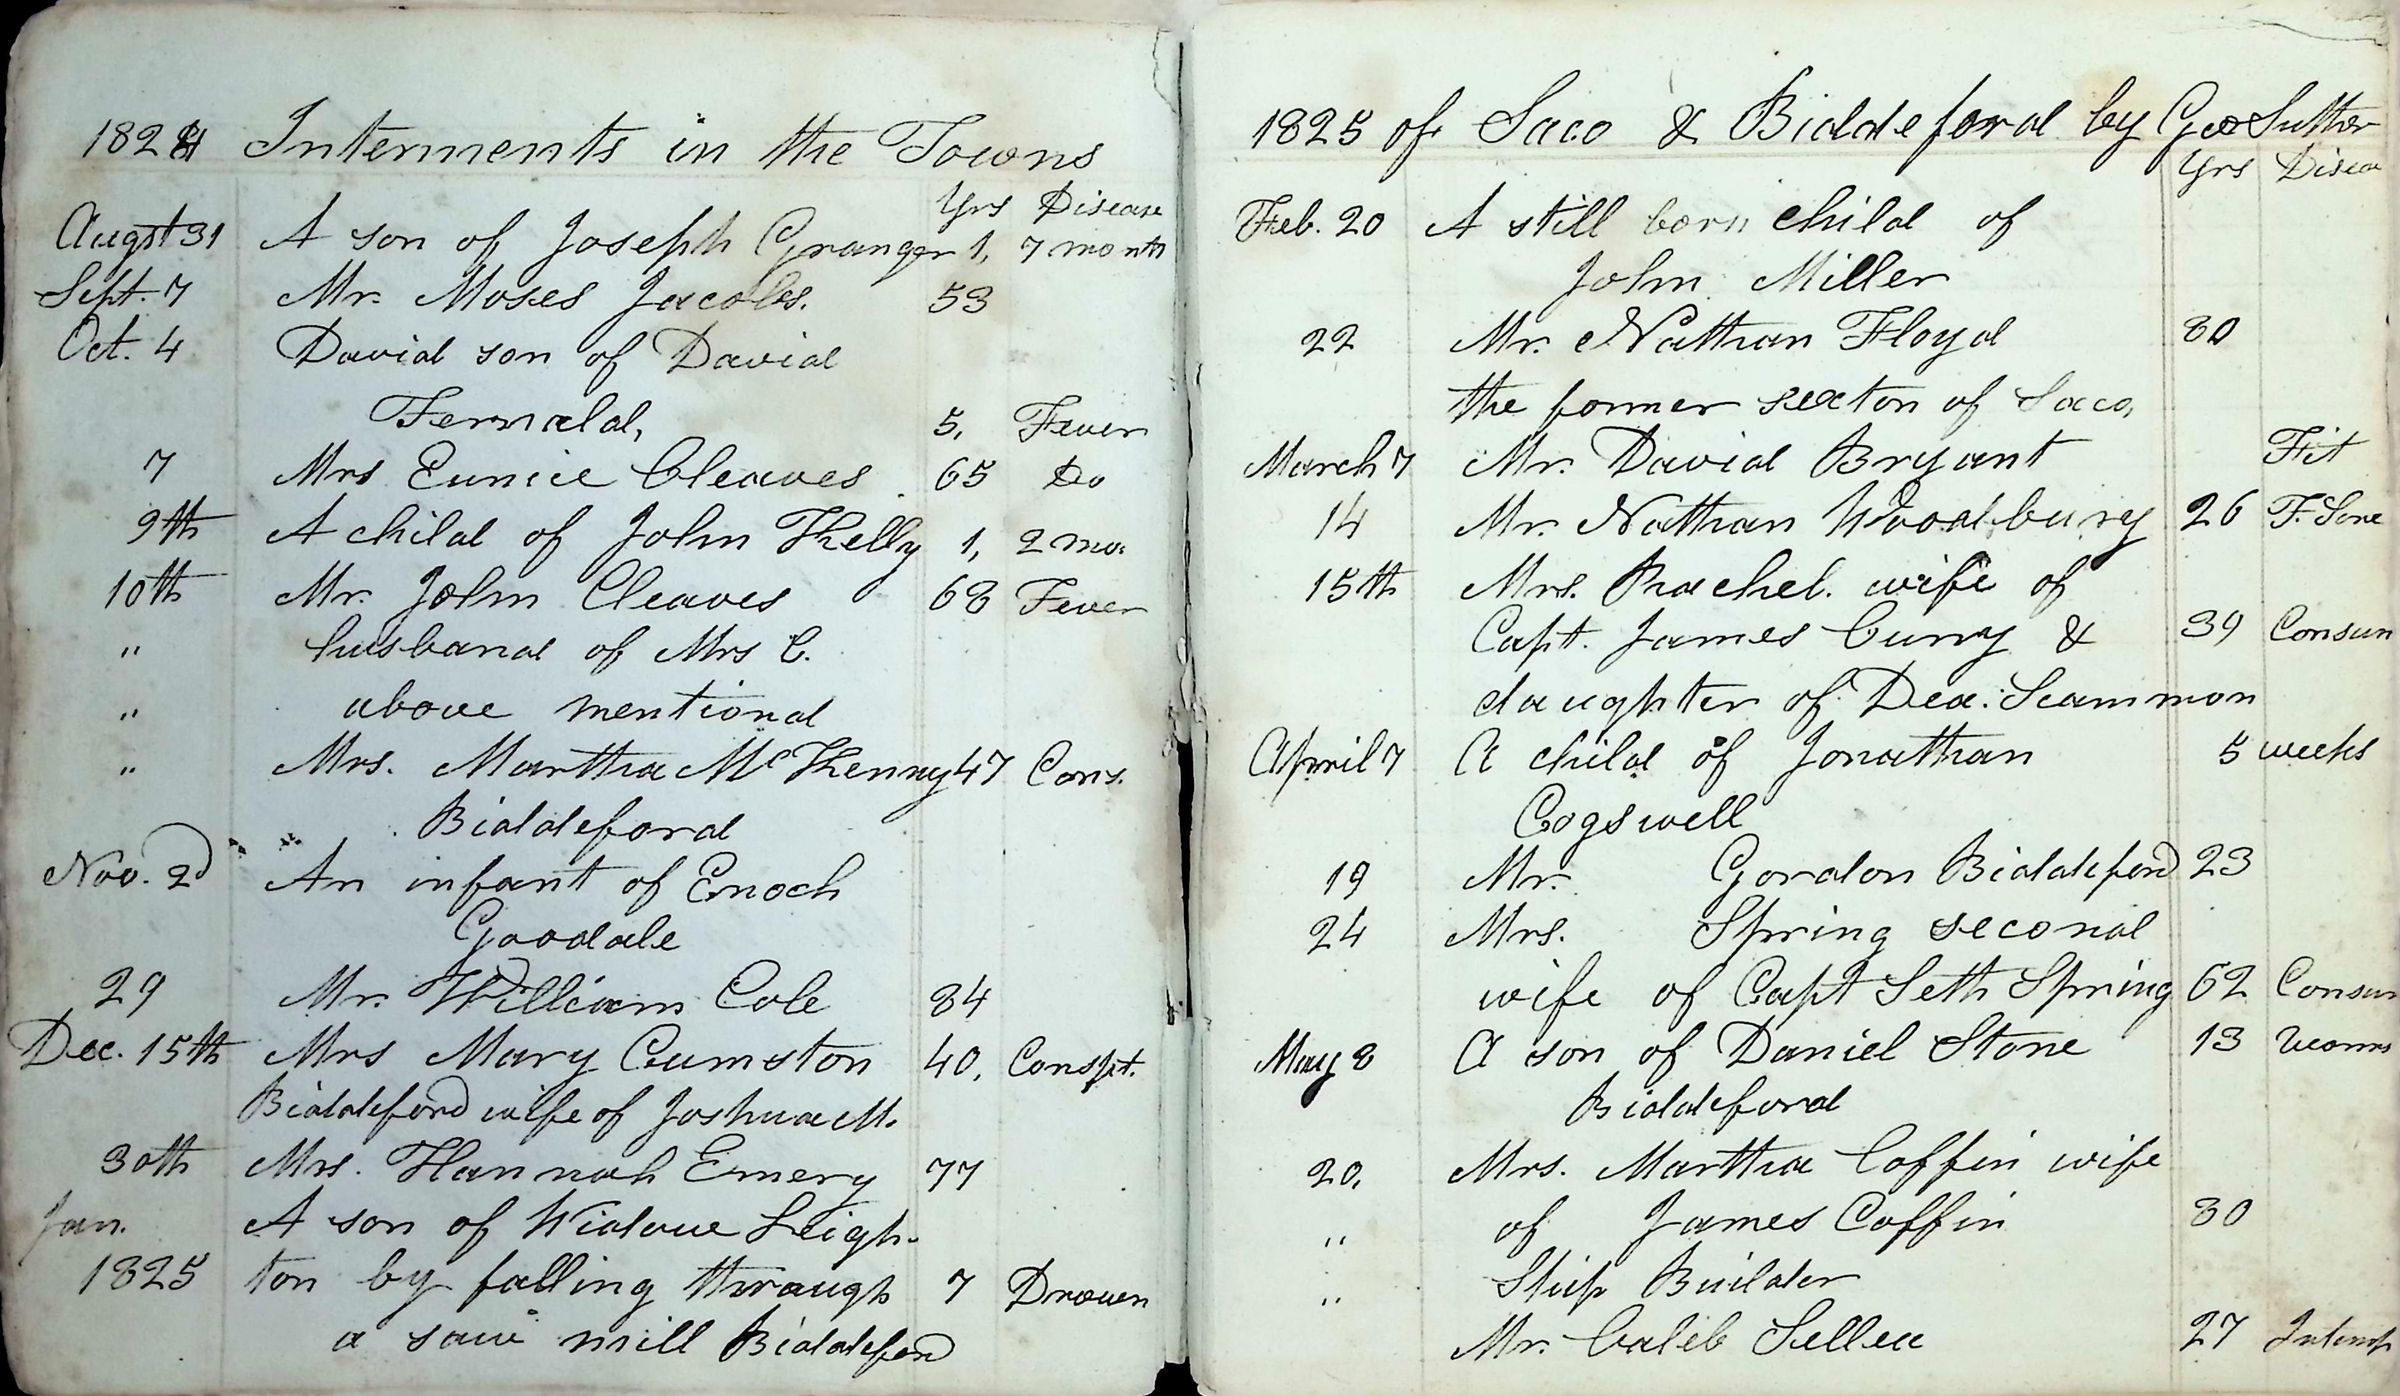 1824 Interments in the Towns
Yrs Disease
Augst 31 A son of Joseph Granger 1, 7 month
Sept. 7 Mr. Moses Jacobs. 53
Oct. 4 David son of David
Fernald, 5, Fever
7 Mrs Eunice Cleaves 65 Do
9th A child of John Kelly 1, 2 mo.
10th Mr. John Cleaves 68 Fever
" husband of Mrs C.
" above mentiond
" Mrs. Martha McKenny 47 Cons.
Biddeford
Nov. 2d An infant of Enoch
Goodale
29 Mr. William Cole 84
Dec. 15th Mrs Mary Cumston 40, Conspt.
Biddeford wife of Joshua M.
30th Mrs. Hannah Emery 77
Jan. A son of Widow Leigh-
1825 ton by falling through 7 Drown
a saw mill Biddeford
1825 of Saco & Biddeford by Geo Suther
Yrs Disea
Feb. 20 A still born child of
John Miller
22 Mr. Nathan Floyd 80
the former sexton of Saco,
March 7 Mr. David Bryant Fit
14 Mr. Nathan Woodbury 26 F. Sore
15th Mrs. Rachel. wife of
Capt. James Curry & 39 Consun
daughter of Dea. Scammon
April 7 A child of Jonathan 5 weeks
Cogswell
19 Mr. Gordon Biddeford 23
24 Mrs. Spring second
wife of Capt Seth Spring 62 Consun
May 8 A son of Daniel Stone 13 Worms
Biddeford
20, Mrs. Martha Coffin wife
" of James Coffin 80
" Ship Builder
Mr. Caleb Sellea 27 Intemp